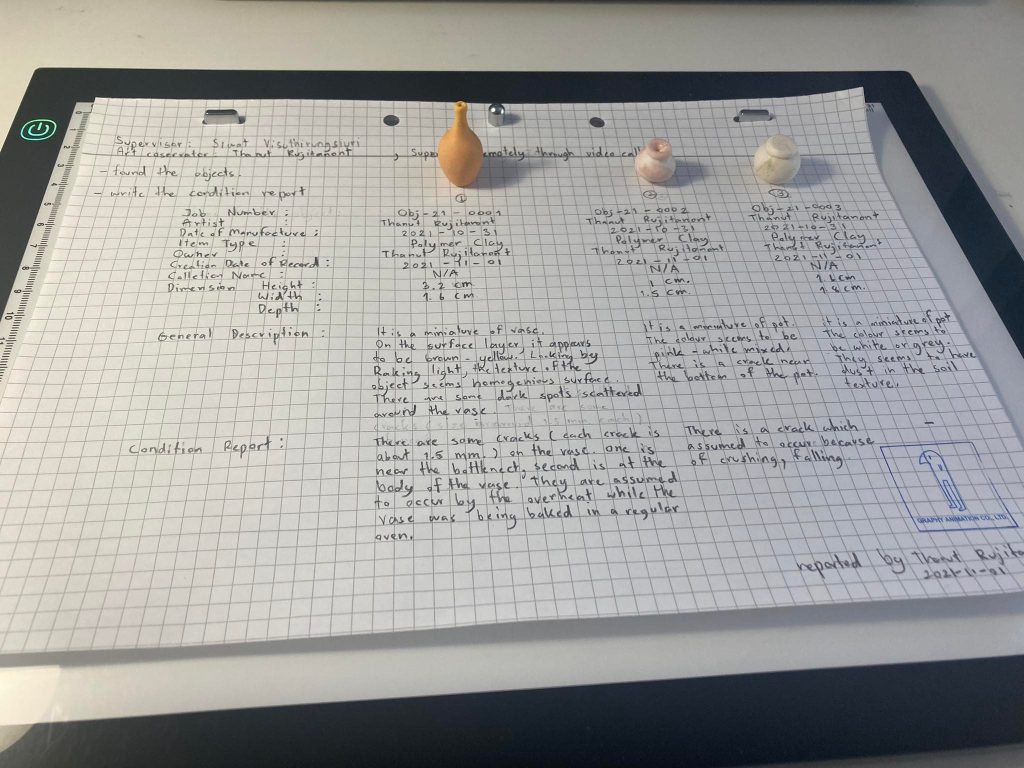 Supervisor: Siwat Visuthirungsiuri
Art coservator: Thanut Rujitanont , Supe remotely through video call
- found the objects.
- write the condition report
① ② ③
Job Number : Obj-21-0001 Obj-21-0002 Obj-21-0003
Artist : Thanut Rujitanont Thanut Rujitanont Thanut Rujitanont
Date of Manufacture : 2021-10-31 2021-10-31 2021-10-31
Item Type : Polymer Clay Polymer Clay Polymer Clay
Owner : Thanut Rujitanont Thanut Rujitanont Thanut Rujitanont
Creation Date of Record : 2021-11-01 2021-11-01 2021-11-01
Colletion Name : N/A N/A N/A
Dimension Height : 3.2 cm 1 cm. 1.6cm
Width : 1.6 cm 1.5 cm. 1.8cm.
Depth :
General Description :
It is a miniature of vase.
On the surface layer, it appears
to be brown-yellow. Looking by
Raking light, the texture of the
object seems homogenious surface.
There are some dark spots scattered
around the vase. There are some
cracks (size around 1.5 mm each)
It is a miniature of pot.
The colour seems to be
pink-white mixed.
There is a crack near
the bottom of the pot.
it is a miniature of pot
The colour seems to
be white or grey.
They seems to have
dust in the soil
texture.
Condition Report :
There are some cracks (each crack is
about 1.5 mm.) on the vase. one is
near the bottleneck, second is at the
body of the vase. They are assumed
to occur by the overheat while the
vase was being baked in a regular
oven.
There is a crack which
assumed to occur because
of crushing, falling
-
GRAPHY ANIMATION CO., LTD.
reported by Thanut Rujita
2021-11-01